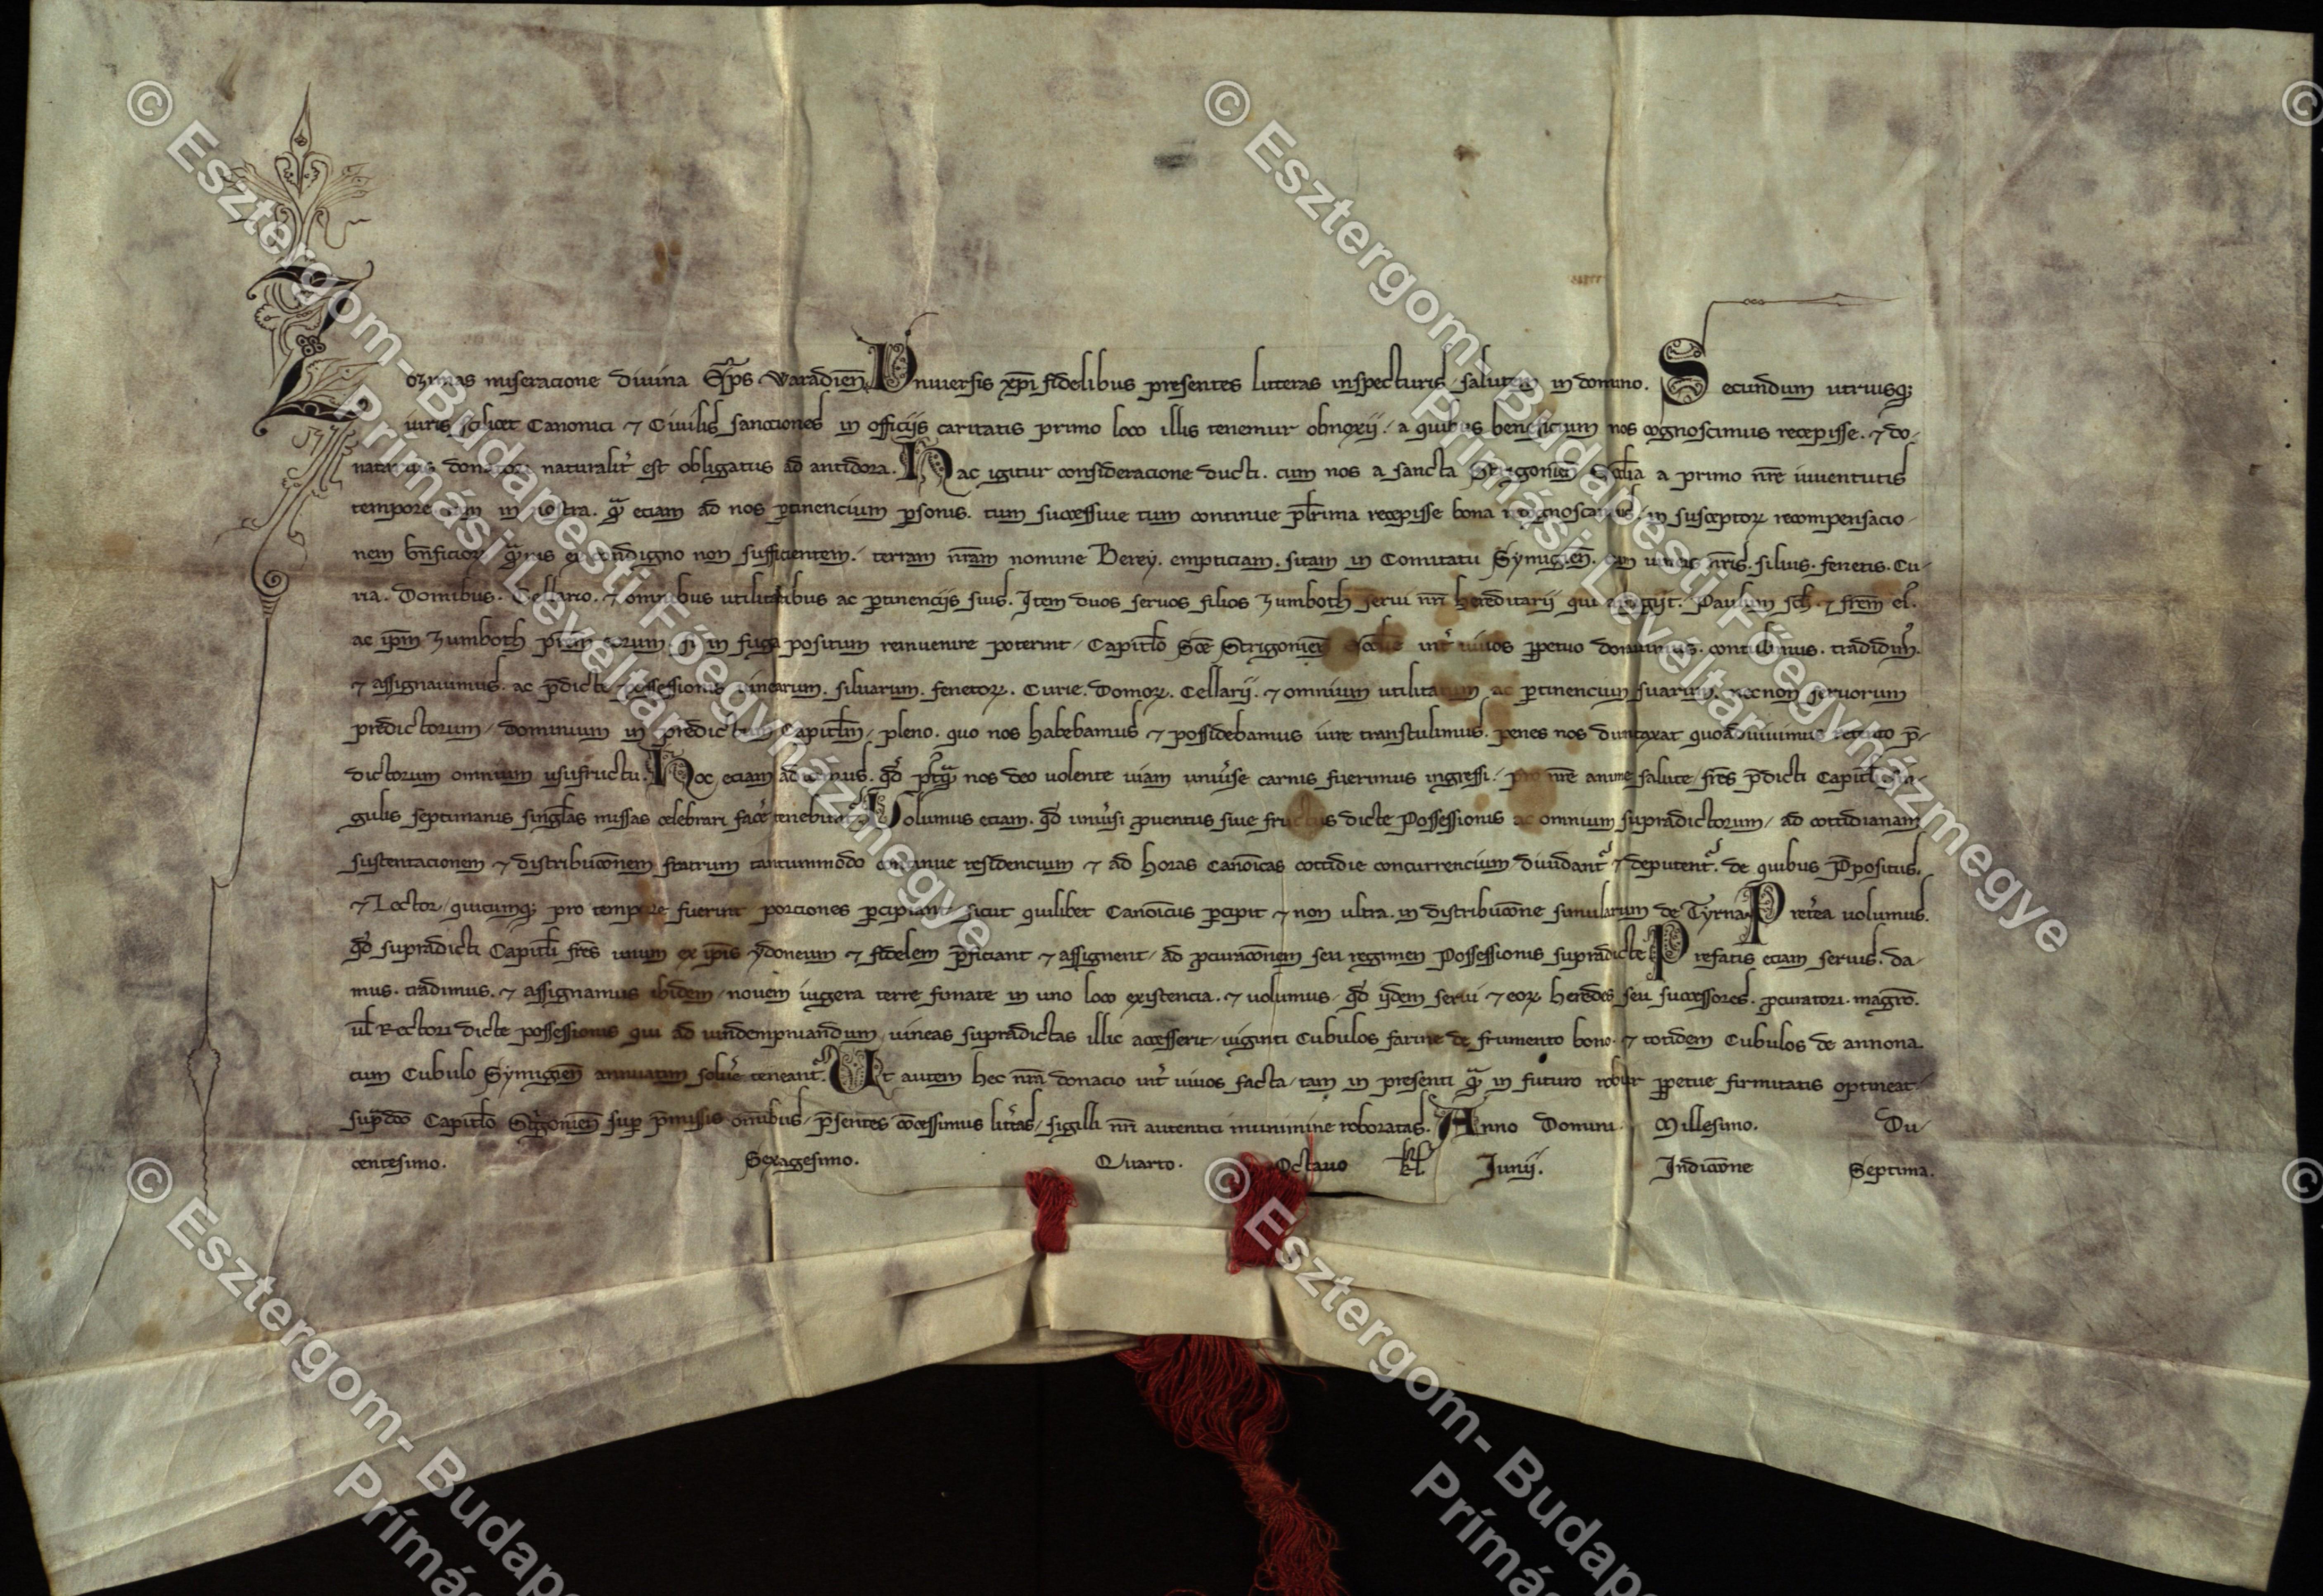 Zozimas miseracione diuina Ep̄s Waradien̄. Vniuersis xp̄i fidelibus presentes litteras inspecturis salutem in domino. Secundum utriusq;
iuris scilicet Canonici ⁊ Ciuilis sancciones in officijs caritatis primo loco illis tenemur obnoxii, a quibus beneficium nos cognoscimus recepisse. ⁊ do-
natarius donatori naturalit̾ est obligatus ad antidora. Hac igitur consideracione ducti. cum nos a sancta Strigonien̄ Eccl̄ia a primo nr̄e iuuentutis
tempore tam in nostra. qᵃ̄ eciam ad nos ꝑtinencium ꝑsonis. tum successiue tum continue pl̄rima recepisse bona recognoscamus, in susceptoꝝ recompensacio-
nem bn̄ficioꝝ qᵃ̄uis ex condigno non sufficientem, terram nr̄am nomine Berey. empticiam. sitam in Comitatu Symigien̄. cum uineis nr̄is. siluis. fenetis. Cu-
ria. Domibus. Cellario. ⁊ omnibus utilitatibus ac ꝑtinencijs suis. Item duos seruos filios Zumboth serui nr̄i hereditarii qui aufugijt. Paulum scil. ⁊ fr̄em ei᾽.
ac ip̄m Zumboth pr̄em eorum, si in fuga positum reinuenire poterint, Capitl̄o Sc̄e Strigonien̄ Eccl̄ie int̾ uiuos ꝑpetuo donauimus. contulimus. tradidim᾽.
⁊ assignauimus. ac p̄dicte possessionis uinearum. siluarum. fenetoꝝ. Curie. Domoꝝ. Cellarii. ⁊ omnium utilitatum ac ꝑtinencium suarum. necnon seruorum
predictorum, dominium in predictum Capitl̄m, pleno. quo nos habebamus ⁊ possidebamus iure transtulimus. penes nos duntaxat quoaduiuimus retento p̄-
dictorum omnium usufructu. Hoc eciam adicimus. qd̾ pꝰtqᵃ̄ nos deo uolente uiam uniu̾se carnis fuerimus ingressi, pro nr̄e anime salute, fr̄es p̄dicti Capitl̄i sin-
gulis septimanis singl̄as missas celebrari fac̾e tenebuntᷣ. Volumus eciam. qd̾ uniu̾si ꝓuentus siue fructus dicte Possessionis ac omnium supradictorum, ad cottidianam
sustentacionem ⁊ distribuco̅nem fratrum tantummodo continue residencium ⁊ ad horas Cano̅icas cottidie concurrencium, diuidantᷣ ⁊ deputentᷣ. de quibus P̄positus.
⁊ Lector, quicumq; pro tempore fuerint, porciones ꝑcipiant, sicut quilibet Cano̅icus ꝑcipit ⁊ non ultra. in distribuco̅ne simularum de Tyrna. Pret̾ea uolumus.
qd̾ supradicti Capitl̄i fr̄es unum ex ip̄is ydoneum ⁊ fidelem p̄ficiant ⁊ assignent, ad ꝓcuraco̅nem seu regimen Possessionis supradicte. Prefatis eciam seruis. da-
mus. tradimus. ⁊ assignamus ibidem, nouem iugera terre funate in uno loco existencia. ⁊ uolumus, qd̾ ijdem serui ⁊ eoꝝ heredes seu successores. ꝓcuratori. magr̄o.
ul̄ Rectori dicte possessionis qui ad uindempniandum, uineas supradictas illic accesserit, uiginti Cubulos farine de frumento bono. ⁊ totidem Cubulos de annona
cum Cubulo Symigien̄ annuatim solu̾e teneantᷣ. Vt autem hec nr̄a donacio int̾ uiuos facta, tam in presenti qᵃ̄ in futuro robur ꝑpetue firmitatis optineat,
sup̄dc̄o Capitl̄o Strigonien̄ suꝑ p̄missis om̄ibus, p̄sentes co̅cessimus litt̾as, sigilli nr̄i autentici munimine roboratas. Anno Domini. Millesimo. Du-
centesimo. Sexagesimo. Quarto. Octauo kl̄. Junij. Indico̅ne Septima.
© Esztergom- Budapesti Főegyházmegye
Prímási Levéltár
© Esztergom- Budapesti Főegyházmegye
Prímási Levéltár